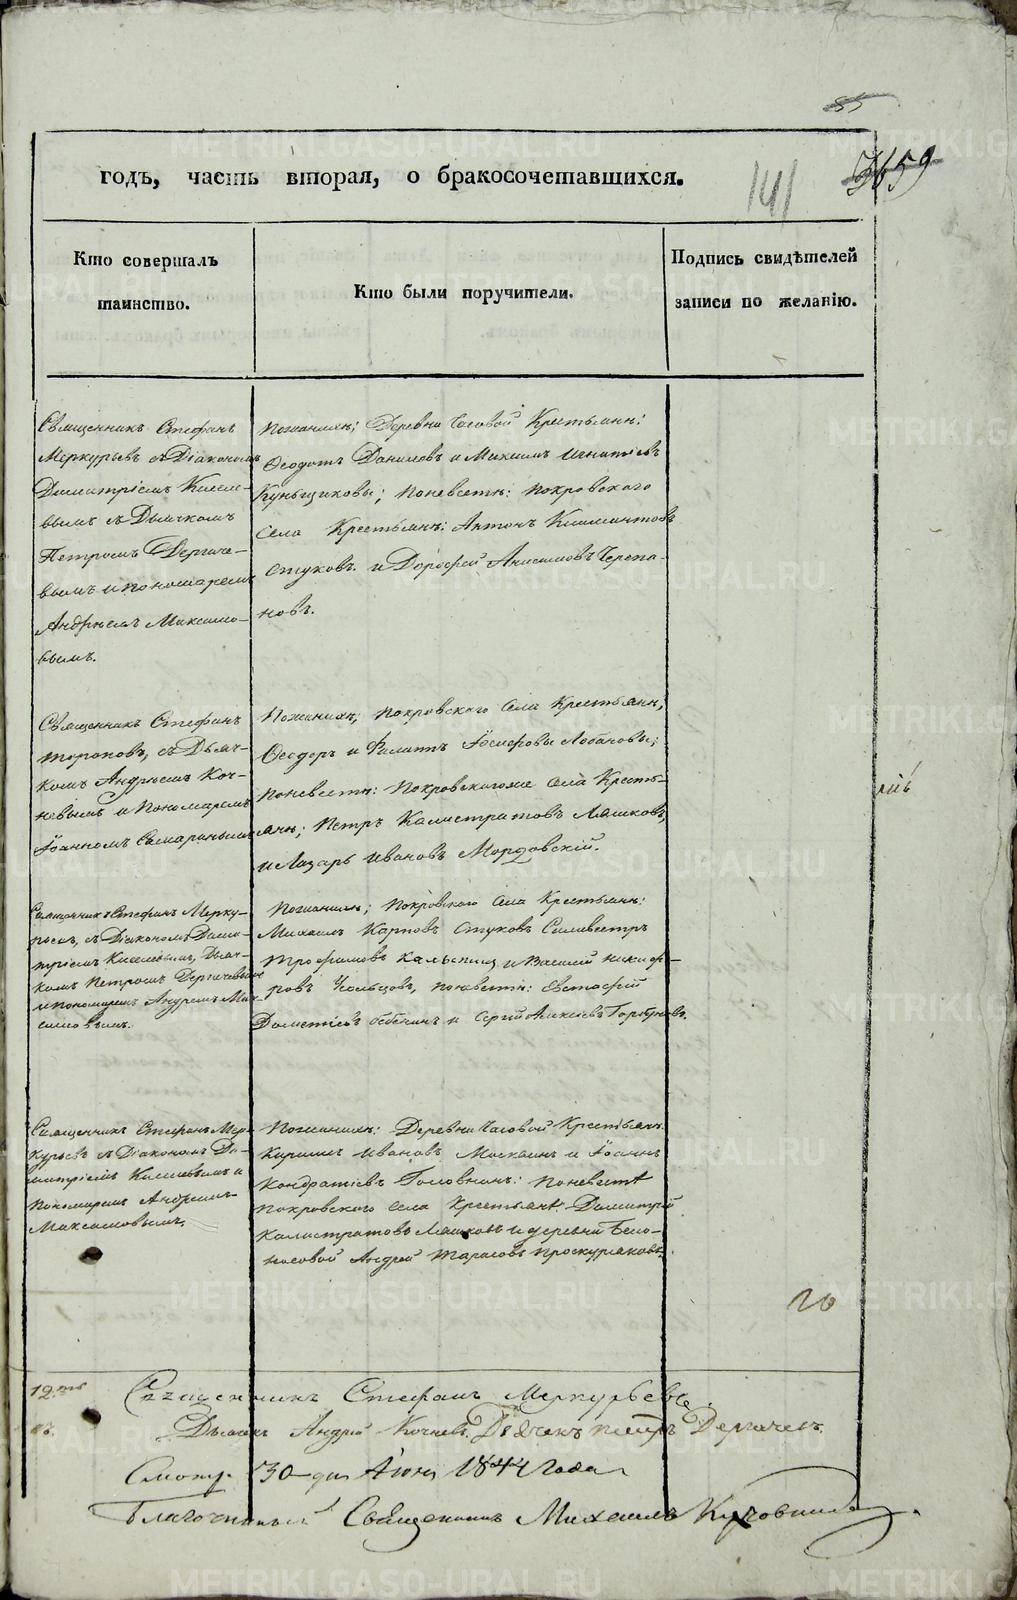 85
годъ, часть вторая, о бракосочетавшихся.
141
59
Кто совершалъ
таинство.
Кто были поручители.
Подпись свидѣтелей
записи по желанію.
Священникъ Стефанъ
Меркурьевъ съ Діакономъ
Димитріемъ Киселе-
вымъ съ Дьячкомъ
Петромъ Дергаче-
вымъ и пономаремъ
Андреемъ Максимо-
вымъ.
Поженихѣ; Деревни Часовой Крестьяне:
Ѳеодотъ Даниловъ и Михаилъ Игнатіевъ
Куньщиковы; поневѣстѣ: Покровскаго
села Крестьяне: Антонъ Климантовъ
Стуковъ и Дорофей Анисимовъ Черепа-
новъ.
Священникъ Стефанъ
Тороповъ, съ Дьяч-
комъ Андреемъ Коч-
невымъ и Пономаремъ
Іоанномъ Самаринымъ
Поженихѣ; Покровскаго села Крестьяне,
Ѳеодоръ и Филатъ Іосифовы Лобановы;
поневѣстѣ: Покровскагоже села Кресть-
яне; Петръ Калистратовъ Ляшковъ,
и Лазарь Ивановъ Мордовскій.
Священникъ Стефанъ Мерку-
рьевъ, съ Діакономъ Дими-
тріемъ Киселевымъ, Дьяч-
комъ Петромъ Дергачевымъ
и пономаремъ Андреемъ Мак-
симовымъ.
Поженихѣ; Покровскаго села Крестьяне:
Михаилъ Карповъ Стуковъ Силивестръ
Трофимовъ и Василій Никиф-
ровъ Кольцовъ, поневѣстѣ: Евстафій
Дометіевъ Бебенинъ и Сергій Алексѣевъ Горбуновъ.
Священникъ Стефанъ Мер-
курьевъ съ Діакономъ Ди-
митріемъ Киселевымъ и
Пономаремъ Андреемъ
Максимовымъ.
Поженихѣ: Деревни Часовой Крестьяне
Кирилъ Ивановъ Москвинъ и Іоаннъ
Кондратіевъ Головнинъ: поневестѣ
Покровскаго села Крестьяне Димитрій
Калистратовъ Ляшковъ и деревни Бело-
носовой Андрей Тарасовъ Проскуряковъ.
20
Священникъ Стефанъ Меркурьевъ
Дьячекъ Андрей Кочневъ. Дьячекъ Петръ Дергачевъ.
Смотр. 30 дня Іюня 1844 Года
Благочинный Священникъ Михаилъ